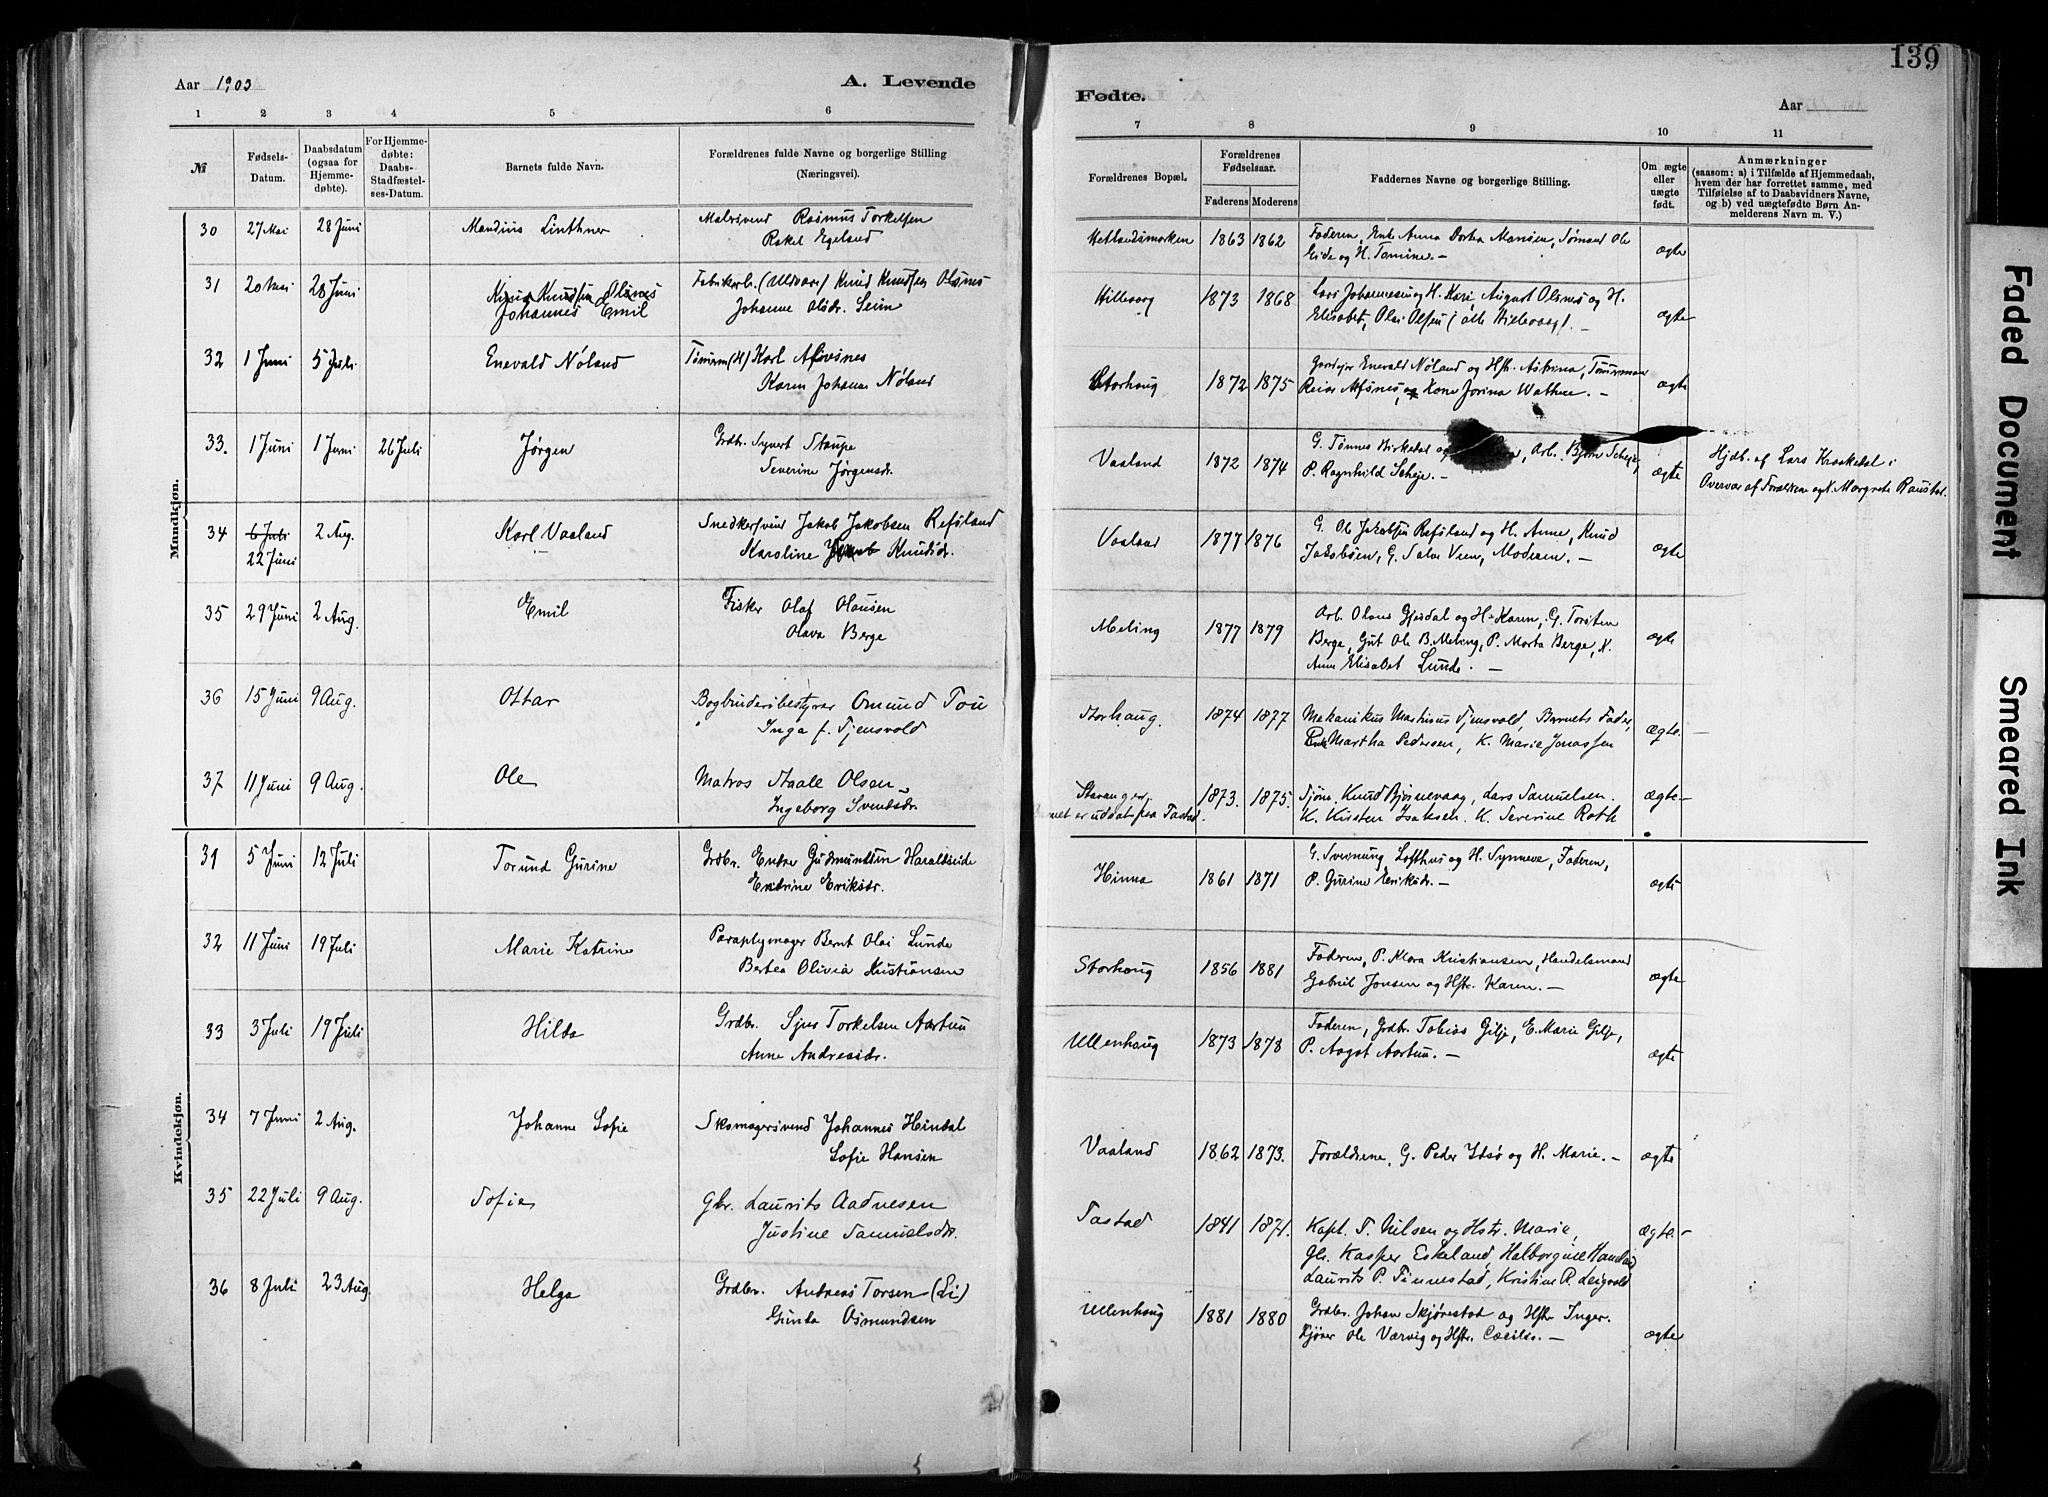 Aar 1903
A. Levende
Fødte.
Aar
139
1 2 3 4 5 6 7 8 9 10 11
№
Fødsels-
Datum.
Daabsdatum
(ogsaa for
Hjemme-
døbte).
For Hjemme-
døbte:
Daabs-
Stadfæstel-
ses-Datum.
Barnets fulde Navn.
Forældrenes fulde Navne og borgerlige Stilling
(Næringsvei).
Forældrenes Bopæl.
Forældrenes
Fødselsaar.
Faderens Moderens
Faddernes Navne og borgerlige Stilling.
Om ægte
eller
uægte
født.
Anmærkninger
(saasom: a) i Tilfælde af Hjemmedaab,
hvem der har forrettet samme, med
Tilføielse af to Daabsvidners Navne,
og b) ved uægtefødte Børn An-
melderens Navn m. V.)
Mandkjøn.
30 27 Mai 28 Juni Mandius Linthner Malersvend Rasmus Torkelsen
Rakel Egeland
Hetlandsmarken 1863 1862 Faderen, Enke Anna Dortea Hansen, Sømand Ole
Eide og H. Tomine. — ægte
31 20 Mai 28 Juni Knud Knudsen Olsnes
Johannes Emil
Fabrikarb. (Uldvar) Knud Knudsen Olsnes
Johanne Olsdr. Seim
Hillevaag 1873 1868 Lars Johannesen og H. Kari, August Olsnes og H.
Elisabet, Olai Olsen (alle Hillevaag). — ægte
32 1 Juni 5 Juli Enevald Nóland Tømrm (H) Karl Alfsnes
Karen Johanne Nóland
Storhaug 1872 1875 Gardejer Enevald Nóland og Hstr. Astrina, Tømrmand
Reier Alfsnes, og Kone Jorina Wathne. — ægte
33. 1 Juni 1 Juni 26 Juli Jørgen Grdbr. Syvert Staupe
Severine Jørgensdr.
Vaaland 1872 1874 G. Tønnes Birkedal og Arb. Bjørn Scheje,
P. Ragnhild Scheje. — ægte
Hjdb. af Lars Kraakedal i
Overvær af Forældrene og K. Margrete Raustad.
34 6 Juli
22 Juni 2 Aug. Karl Vaaland Snedkersvend Jakob Jakobsen Refsland
Karoline Knudsdr.
Vaaland 1877 1876 G. Ole Jakobsen Refsland og H. Anne, Knud
Jakobsen, G. Salve Veen, Moderen. — ægte
35 29 Juni 2 Aug. Emil Fisker Olaf Olausen
Olava Berge
Meling 1877 1879 Arb. Olaus Gjesdal og H. Karen, G. Torsten
Berge, Gut Ole B. Meling, P. Marta Berge, K.
Anne Elisabet Lunde. — ægte
36 15 Juni 9 Aug. Ottar Bogbinderibestyrer Omund Tou
Inga f. Tjensvold
Storhaug. 1874 1877 Mekanikus Martinus Tjensvold, Barnets Fader,
Enke Martha Pedersen, K. Marie Jonassen ægte. —
37 11 Juni 9 Aug. Ole Matros Staale Olsen
Ingeborg Sventsdr.
Stavanger,
Barnet er uddat paa Tastad. 1873. 1875. Sjøm. Knud Bjørnevaag, Lars Samuelsen.
K. Kirsten Isaksen. K. Severine Roth ægte —
Kvindekjøn.
31 5 Juni 12 Juli Torund Gurine Grdbr. Endre Gudmundsen Haraldseide
Endrine Eriksdr.
Hinna 1861 1871 G. Sveinung Lofthus og H. Synneve, Faderen,
P. Gurine Eriksdr. — ægte
32 11 Juni 19 Juli Marie Katrine Paraplymager Bernt Olai Lunde
Bertea Olivia Kristiansen
Storhaug 1856 1881 Faderen, P. Klara Kristiansen, Handelsmand
Gabriel Jonsen og Hstr. Karen. — ægte
33 3 Juli 19 Juli Hilda Grdbr. Sjur Torkelsen Aartun
Anne Andreasdr.
Ullenhaug 1873 1878 Faderen, Grdbr. Tobias Gilje, E. Marie Gilje,
P. Aagot Aartun. — ægte
34 7 Juni 2 Aug. Johanne Sofie Skomagersvend Johannes Heindal
Sofie Hansen
Vaaland 1862 1873. Forældrene, G. Peder Idsø og H. Marie. — ægte
35 22 Juli 9 Aug. Sofie Gbr. Laurits Aadnesen
Justine Samuelsdr.
Tastad 1841 1871. Kapt. T. Nilsen og Hstr. Marie,
Gbr. Kasper Eskeland, Halborgine
Laurits P. Finnestad, Kristine R. Leigvold ægte. —
36 8 Juli 23 Aug. Helga Grdbr. Andreas Torsen (Li)
Gunda Osmundsen
Ullenhaug 1881 1880 Grdbr. Johan Skjørestad og Hstr. Inger.
Kjører Ole Værvig og Hstr. Cecilie. — ægte
Faded Document
Smeared Ink